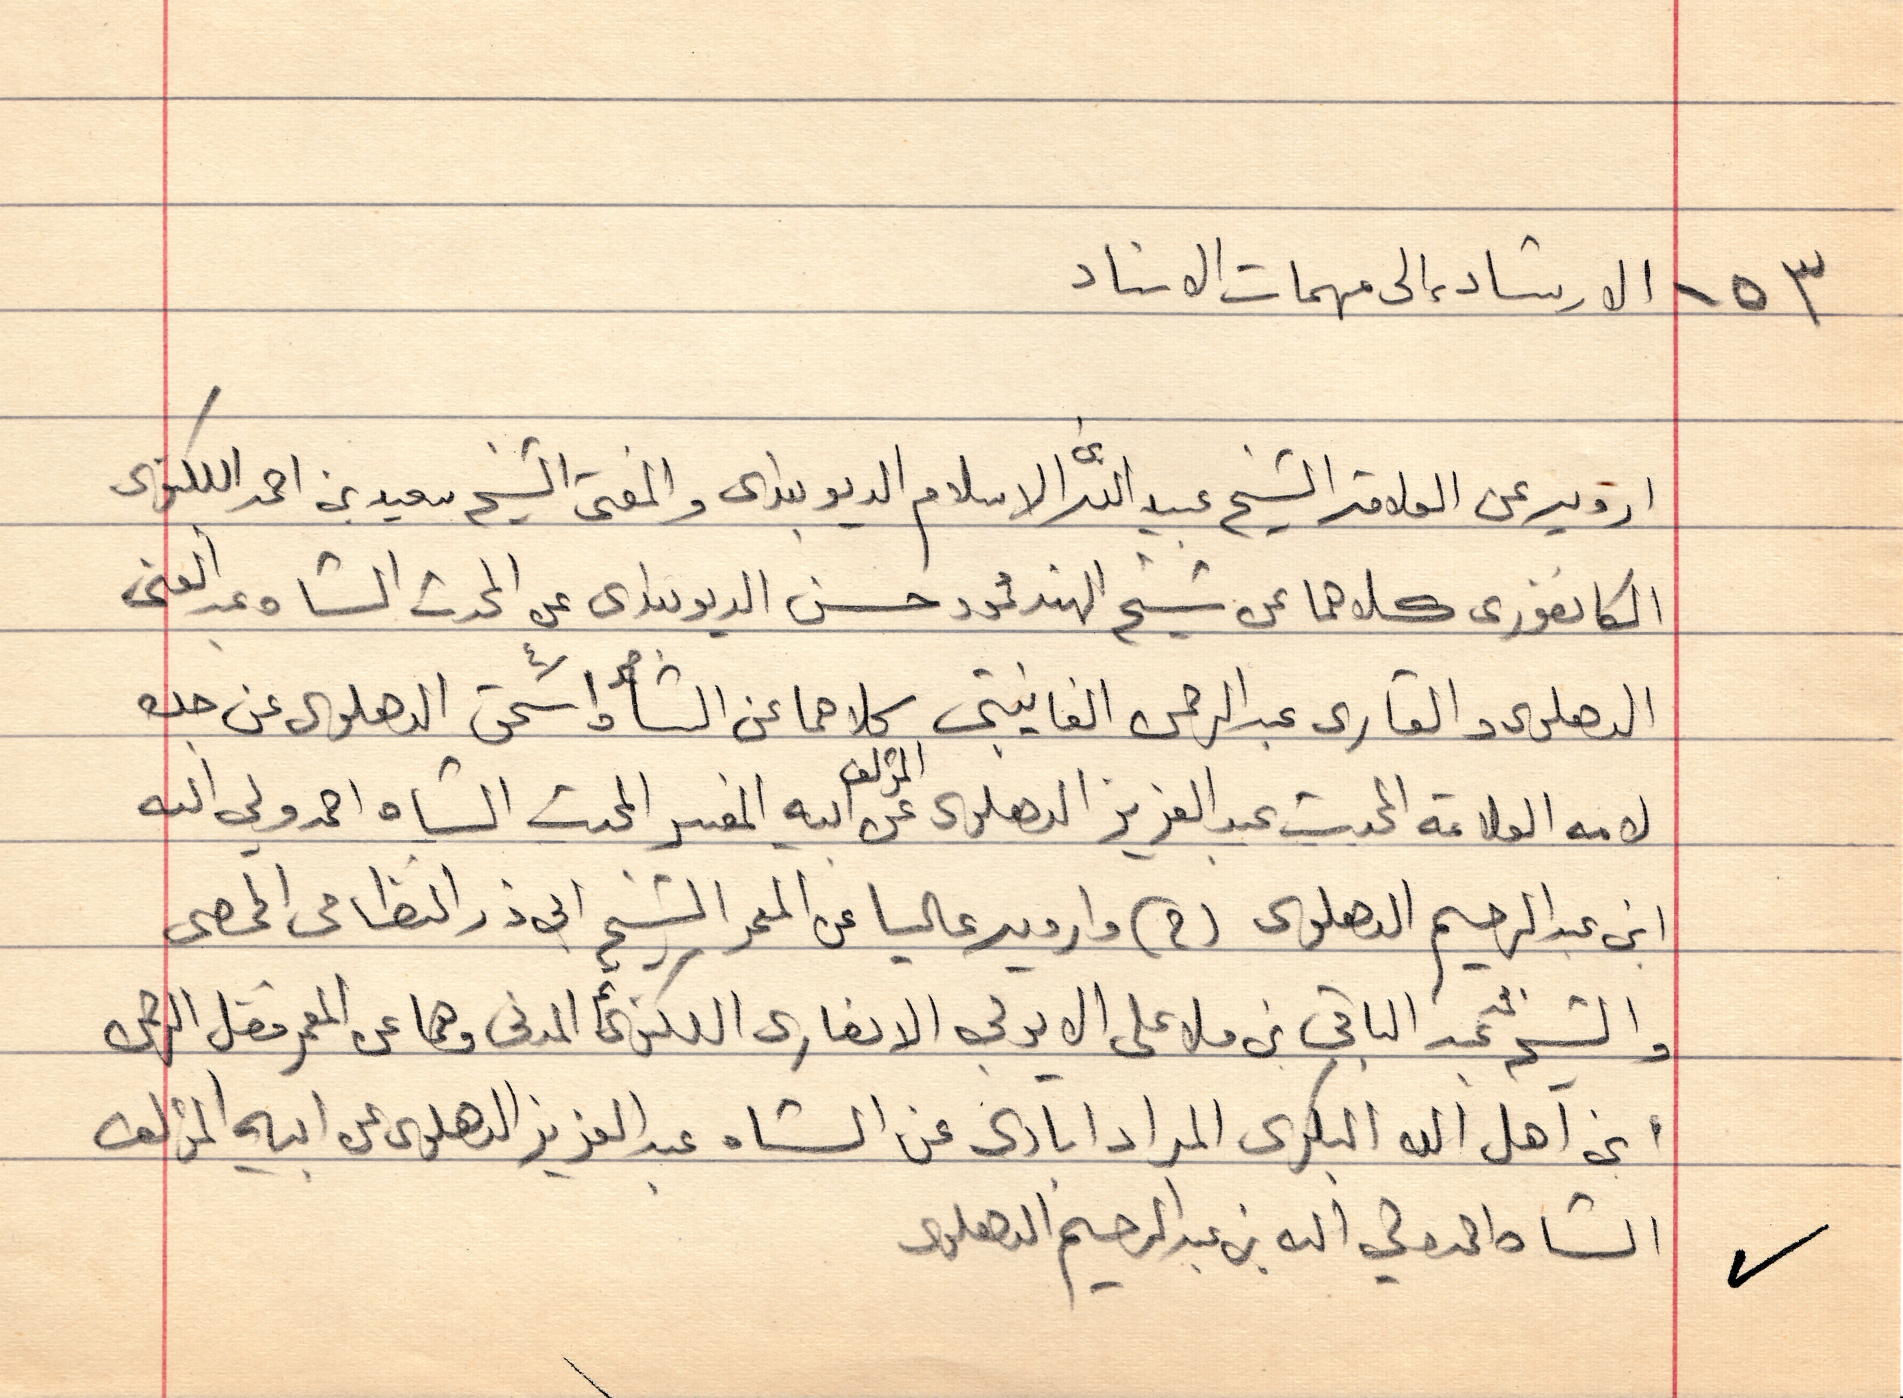 ٣٥- الارشاد إلى مهمات الاسناد
ارويه عن العلامة الشيخ عبيد الله الاسلام الديوبندى والمفتى الشيخ سعيد بن احمد اللكنوى
الكانفورى كلاهما عن شيخ الهند محمود حسن الديوبندى عن المحدث الشاه عبد الغنى
الدهلوى والقارى عبد الرحمن الفانيبتى كلاهما عن الشاه محمد اسحق الدهلوى عن جده
لامه العلامة المحدث عبد العزيز الدهلوى عن ابيه المؤلف المفسر المحدث الشاه احمد ولي الله
ابن عبد الرحيم الدهلوى (ح) وارويه عاليا عن المعمر الشيخ ابي ذر النظامى الحمصى
والشيخ محمد عبد الباقي بن ملا على الايوبي الانصارى اللكنوى المدنى وهما عن المعمر فضل الرحمن
بن اهل الله البكرى المراد ابادى عن الشاه عبد العزيز الدهلوى عن ابيه المؤلف
الشاه احمد ولي الله بن عبد الرحيم الدهلوى